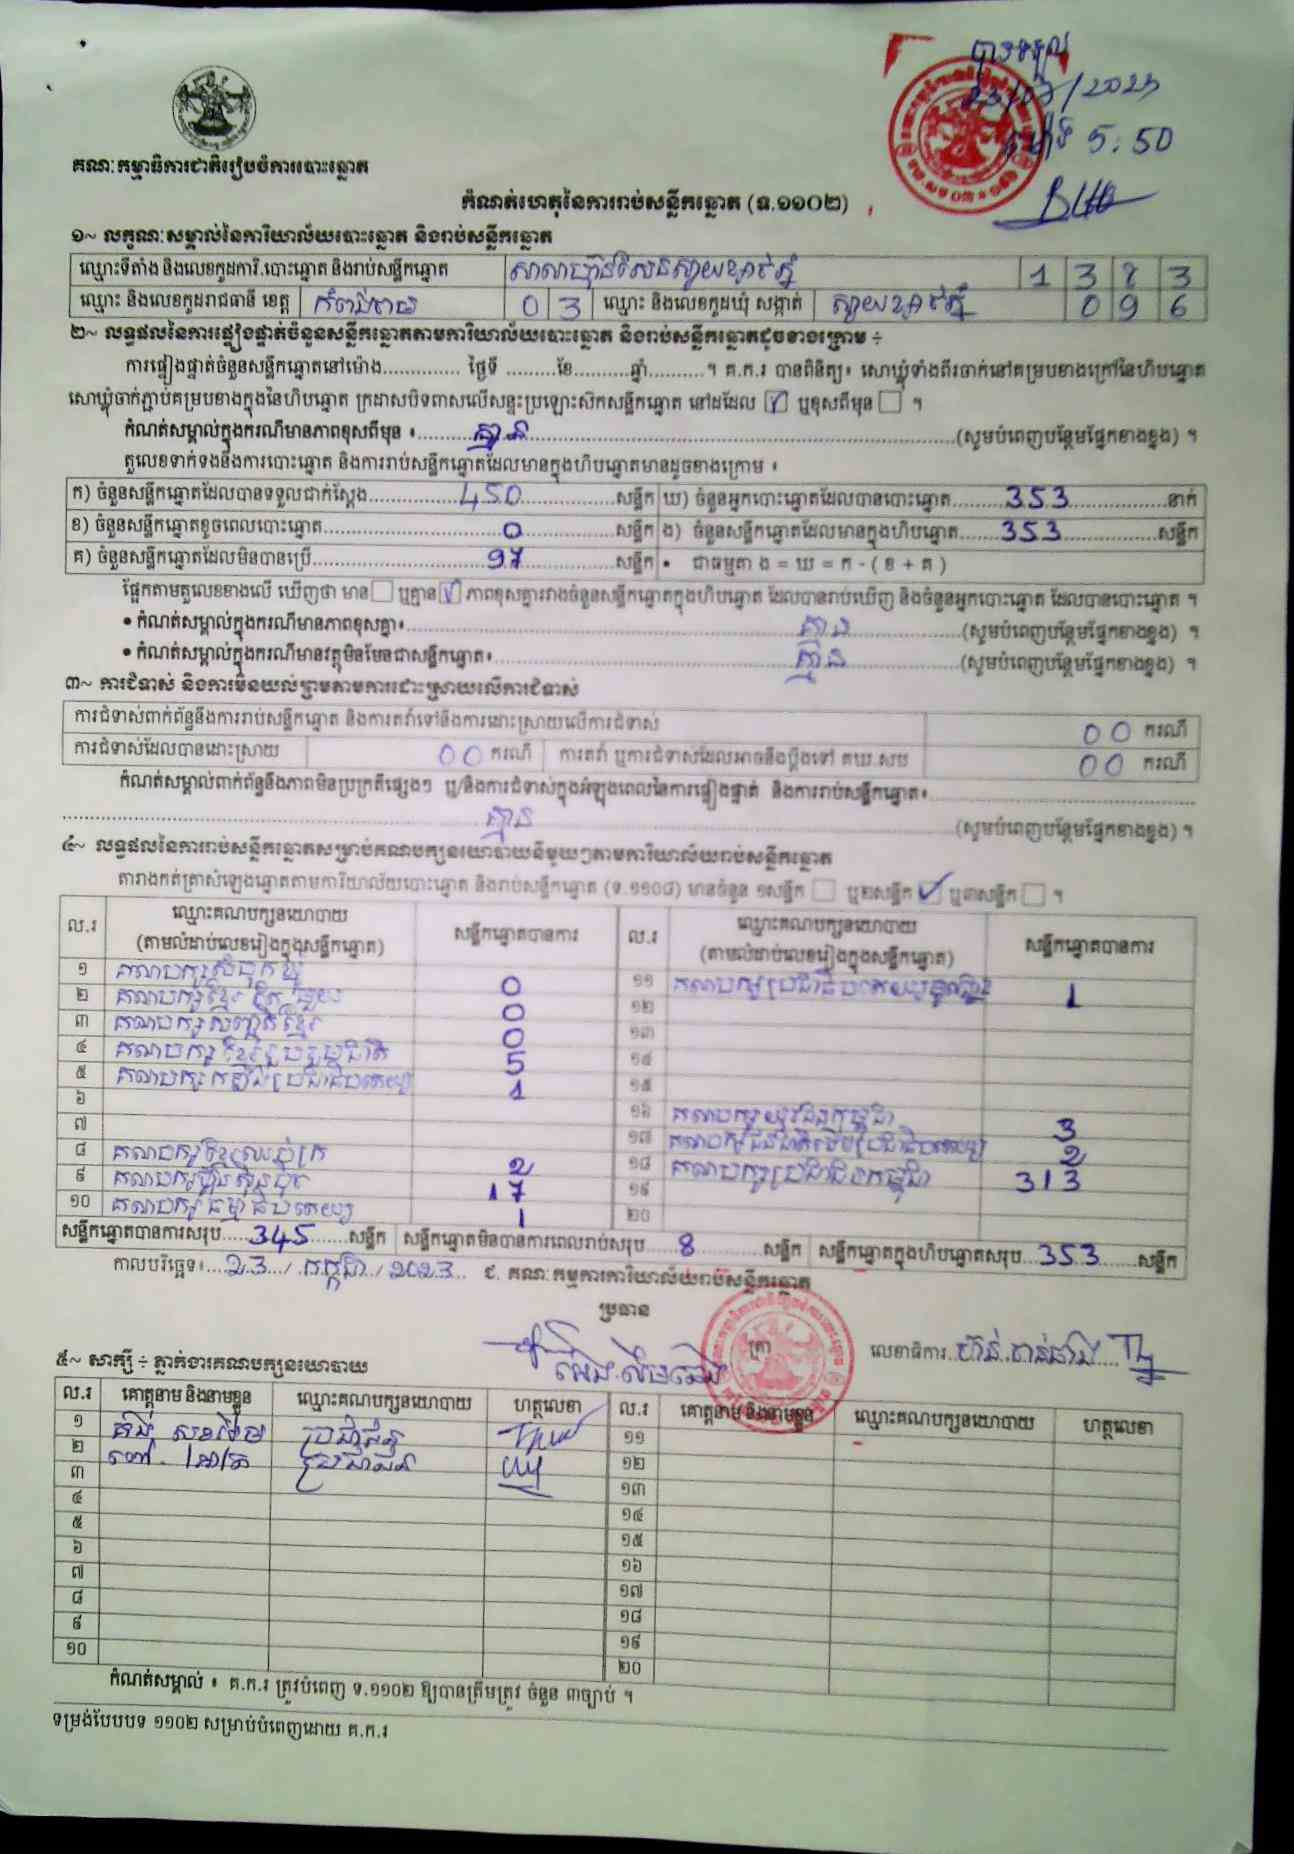 គណៈកម្មាធិការជាតិរៀបចំការបោះឆ្នោត
5:50
កំណត់ហេតុនៃការរាប់សន្លឹកឆ្នោត (ទ.១១០២)
១~ លក្ខណៈសម្គាល់នៃការិយាល័យបោះឆ្នោត និងរាប់សន្លឹកឆ្នោត
ឈ្មោះទីតាំង និងលេខកូដការិ.បោះឆ្នោត និងរាប់សន្លឹកឆ្នោត 1 3 8 3
ឈ្មោះ និងលេខកូដរាជធានី ខេត្ត កំពង់ចាម 0 3 ឈ្មោះ និងលេខកូដឃុំ សង្កាត់ 0 9 6
២~ លទ្ធផលនៃការផ្ទៀងផ្ទាត់ចំនួនសន្លឹកឆ្នោតតាមការិយាល័យបោះឆ្នោត និងរាប់សន្លឹកឆ្នោតដូចខាងក្រោម ÷
ការផ្ទៀងផ្ទាត់ចំនួនសន្លឹកឆ្នោតនៅម៉ោង.............. ថ្ងៃទី .........ខែ..........ឆ្នាំ..........។ គ.ក.រ បានពិនិត្យ៖ សោឃ្លុំទាំងពីរចាក់នៅគម្របខាងក្រៅនៃហិបឆ្នោត
សោឃ្លុំចាក់ភ្ជាប់គម្របខាងក្នុងនៃហិបឆ្នោត ក្រដាសបិទពាសលើសន្ទះប្រឡោះសិកសន្លឹកឆ្នោត នៅដដែល ☑ ឬខុសពីមុន ☐ ។
កំណត់សម្គាល់ក្នុងករណីមានភាពខុសពីមុន ៖ គ្មាន (សូមបំពេញបន្ថែមផ្នែកខាងខ្នង) ។
តួលេខទាក់ទងនឹងការបោះឆ្នោត និងការរាប់សន្លឹកឆ្នោតដែលមានក្នុងហិបឆ្នោតមានដូចខាងក្រោម ៖
ក) ចំនួនសន្លឹកឆ្នោតដែលបានទទួលជាក់ស្តែង 450 សន្លឹក ឃ) ចំនួនអ្នកបោះឆ្នោតដែលបានបោះឆ្នោត 353 នាក់
ខ) ចំនួនសន្លឹកឆ្នោតខូចពេលបោះឆ្នោត 0 សន្លឹក ង) ចំនួនសន្លឹកឆ្នោតដែលមានក្នុងហិបឆ្នោត 353 សន្លឹក
គ) ចំនួនសន្លឹកឆ្នោតដែលមិនបានប្រើ 97 សន្លឹក • ជាធម្មតា ង = ឃ = ក - ( ខ + គ )
ផ្អែកតាមតួលេខខាងលើ ឃើញថា មាន ☐ ឬគ្មាន ☑ ភាពខុសគ្នារវាងចំនួនសន្លឹកឆ្នោតក្នុងហិបឆ្នោត ដែលបានរាប់ឃើញ និងចំនួនអ្នកបោះឆ្នោត ដែលបានបោះឆ្នោត ។
• កំណត់សម្គាល់ក្នុងករណីមានភាពខុសគ្នា៖ គ្មាន (សូមបំពេញបន្ថែមផ្នែកខាងខ្នង) ។
• កំណត់សម្គាល់ក្នុងករណីមានវត្ថុមិនមែនជាសន្លឹកឆ្នោត៖ គ្មាន (សូមបំពេញបន្ថែមផ្នែកខាងខ្នង) ។
៣~ ការជំទាស់ និងការមិនយល់ព្រមតាមការដោះស្រាយលើការជំទាស់
ការជំទាស់ពាក់ព័ន្ធនឹងការរាប់សន្លឹកឆ្នោត និងការតវ៉ាទៅនឹងការដោះស្រាយលើការជំទាស់ 00 ករណី
ការជំទាស់ដែលបានដោះស្រាយ 00 ករណី ការតវ៉ា ឬការជំទាស់ដែលអាចនឹងប្តឹងទៅ គឃ.សប 00 ករណី
កំណត់សម្គាល់ពាក់ព័ន្ធនឹងភាពមិនប្រក្រតីផ្សេងៗ ឬ/និងការជំទាស់ក្នុងអំឡុងពេលនៃការផ្ទៀងផ្ទាត់ និងការរាប់សន្លឹកឆ្នោត៖
គ្មាន (សូមបំពេញបន្ថែមផ្នែកខាងខ្នង) ។
៤~ លទ្ធផលនៃការរាប់សន្លឹកឆ្នោតសម្រាប់គណបក្សនយោបាយនីមួយៗតាមការិយាល័យរាប់សន្លឹកឆ្នោត
តារាងកត់ត្រាសំឡេងឆ្នោតតាមការិយាល័យបោះឆ្នោត និងរាប់សន្លឹកឆ្នោត (ទ.១១០៨) មានចំនួន ១សន្លឹក ☐ ឬ២សន្លឹក ☑ ឬ៣សន្លឹក ☐ ។
ល.រ ឈ្មោះគណបក្សនយោបាយ (តាមលំដាប់លេខរៀងក្នុងសន្លឹកឆ្នោត) សន្លឹកឆ្នោតបានការ ល.រ ឈ្មោះគណបក្សនយោបាយ (តាមលំដាប់លេខរៀងក្នុងសន្លឹកឆ្នោត) សន្លឹកឆ្នោតបានការ
១ 0 ១១ 1
២ 0 ១២
៣ 0 ១៣
៤ គណបក្សខ្មែររួបរួមជាតិ 5 ១៤
៥ គណបក្សកម្លាំងប្រជាធិបតេយ្យ 1 ១៥
៦ ១៦ គណបក្សយុវជនកម្ពុជា 3
៧ ១៧ 2
៨ គណបក្ស 2 ១៨ គណបក្សប្រជាជនកម្ពុជា 313
៩ គណបក្សហ្វ៊ុនស៊ិនប៉ិច 17 ១៩
១០ គណបក្សធម្មាធិបតេយ្យ 1 ២០
សន្លឹកឆ្នោតបានការសរុប 345 សន្លឹក សន្លឹកឆ្នោតមិនបានការពេលរាប់សរុប 8 សន្លឹក សន្លឹកឆ្នោតក្នុងហិបឆ្នោតសរុប 353 សន្លឹក
កាលបរិច្ឆេទ៖ 23 / កក្កដា / 2023 ជ. គណៈកម្មការការិយាល័យរាប់សន្លឹកឆ្នោត
ប្រធាន
ត្រា
លេខាធិការ
៥~ សាក្សី ÷ ភ្នាក់ងារគណបក្សនយោបាយ
ល.រ គោត្តនាម និងនាមខ្លួន ឈ្មោះគណបក្សនយោបាយ ហត្ថលេខា ល.រ គោត្តនាម និងនាមខ្លួន ឈ្មោះគណបក្សនយោបាយ ហត្ថលេខា
១ ប្រជាជន ១១
២ ប្រជាជន ១២
៣ ១៣
៤ ១៤
៥ ១៥
៦ ១៦
៧ ១៧
៨ ១៨
៩ ១៩
១០ ២០
កំណត់សម្គាល់ ៖ គ.ក.រ ត្រូវបំពេញ ទ.១១០២ ឱ្យបានត្រឹមត្រូវ ចំនួន ៣ច្បាប់ ។
ទម្រង់បែបបទ ១១០២ សម្រាប់បំពេញដោយ គ.ក.រ